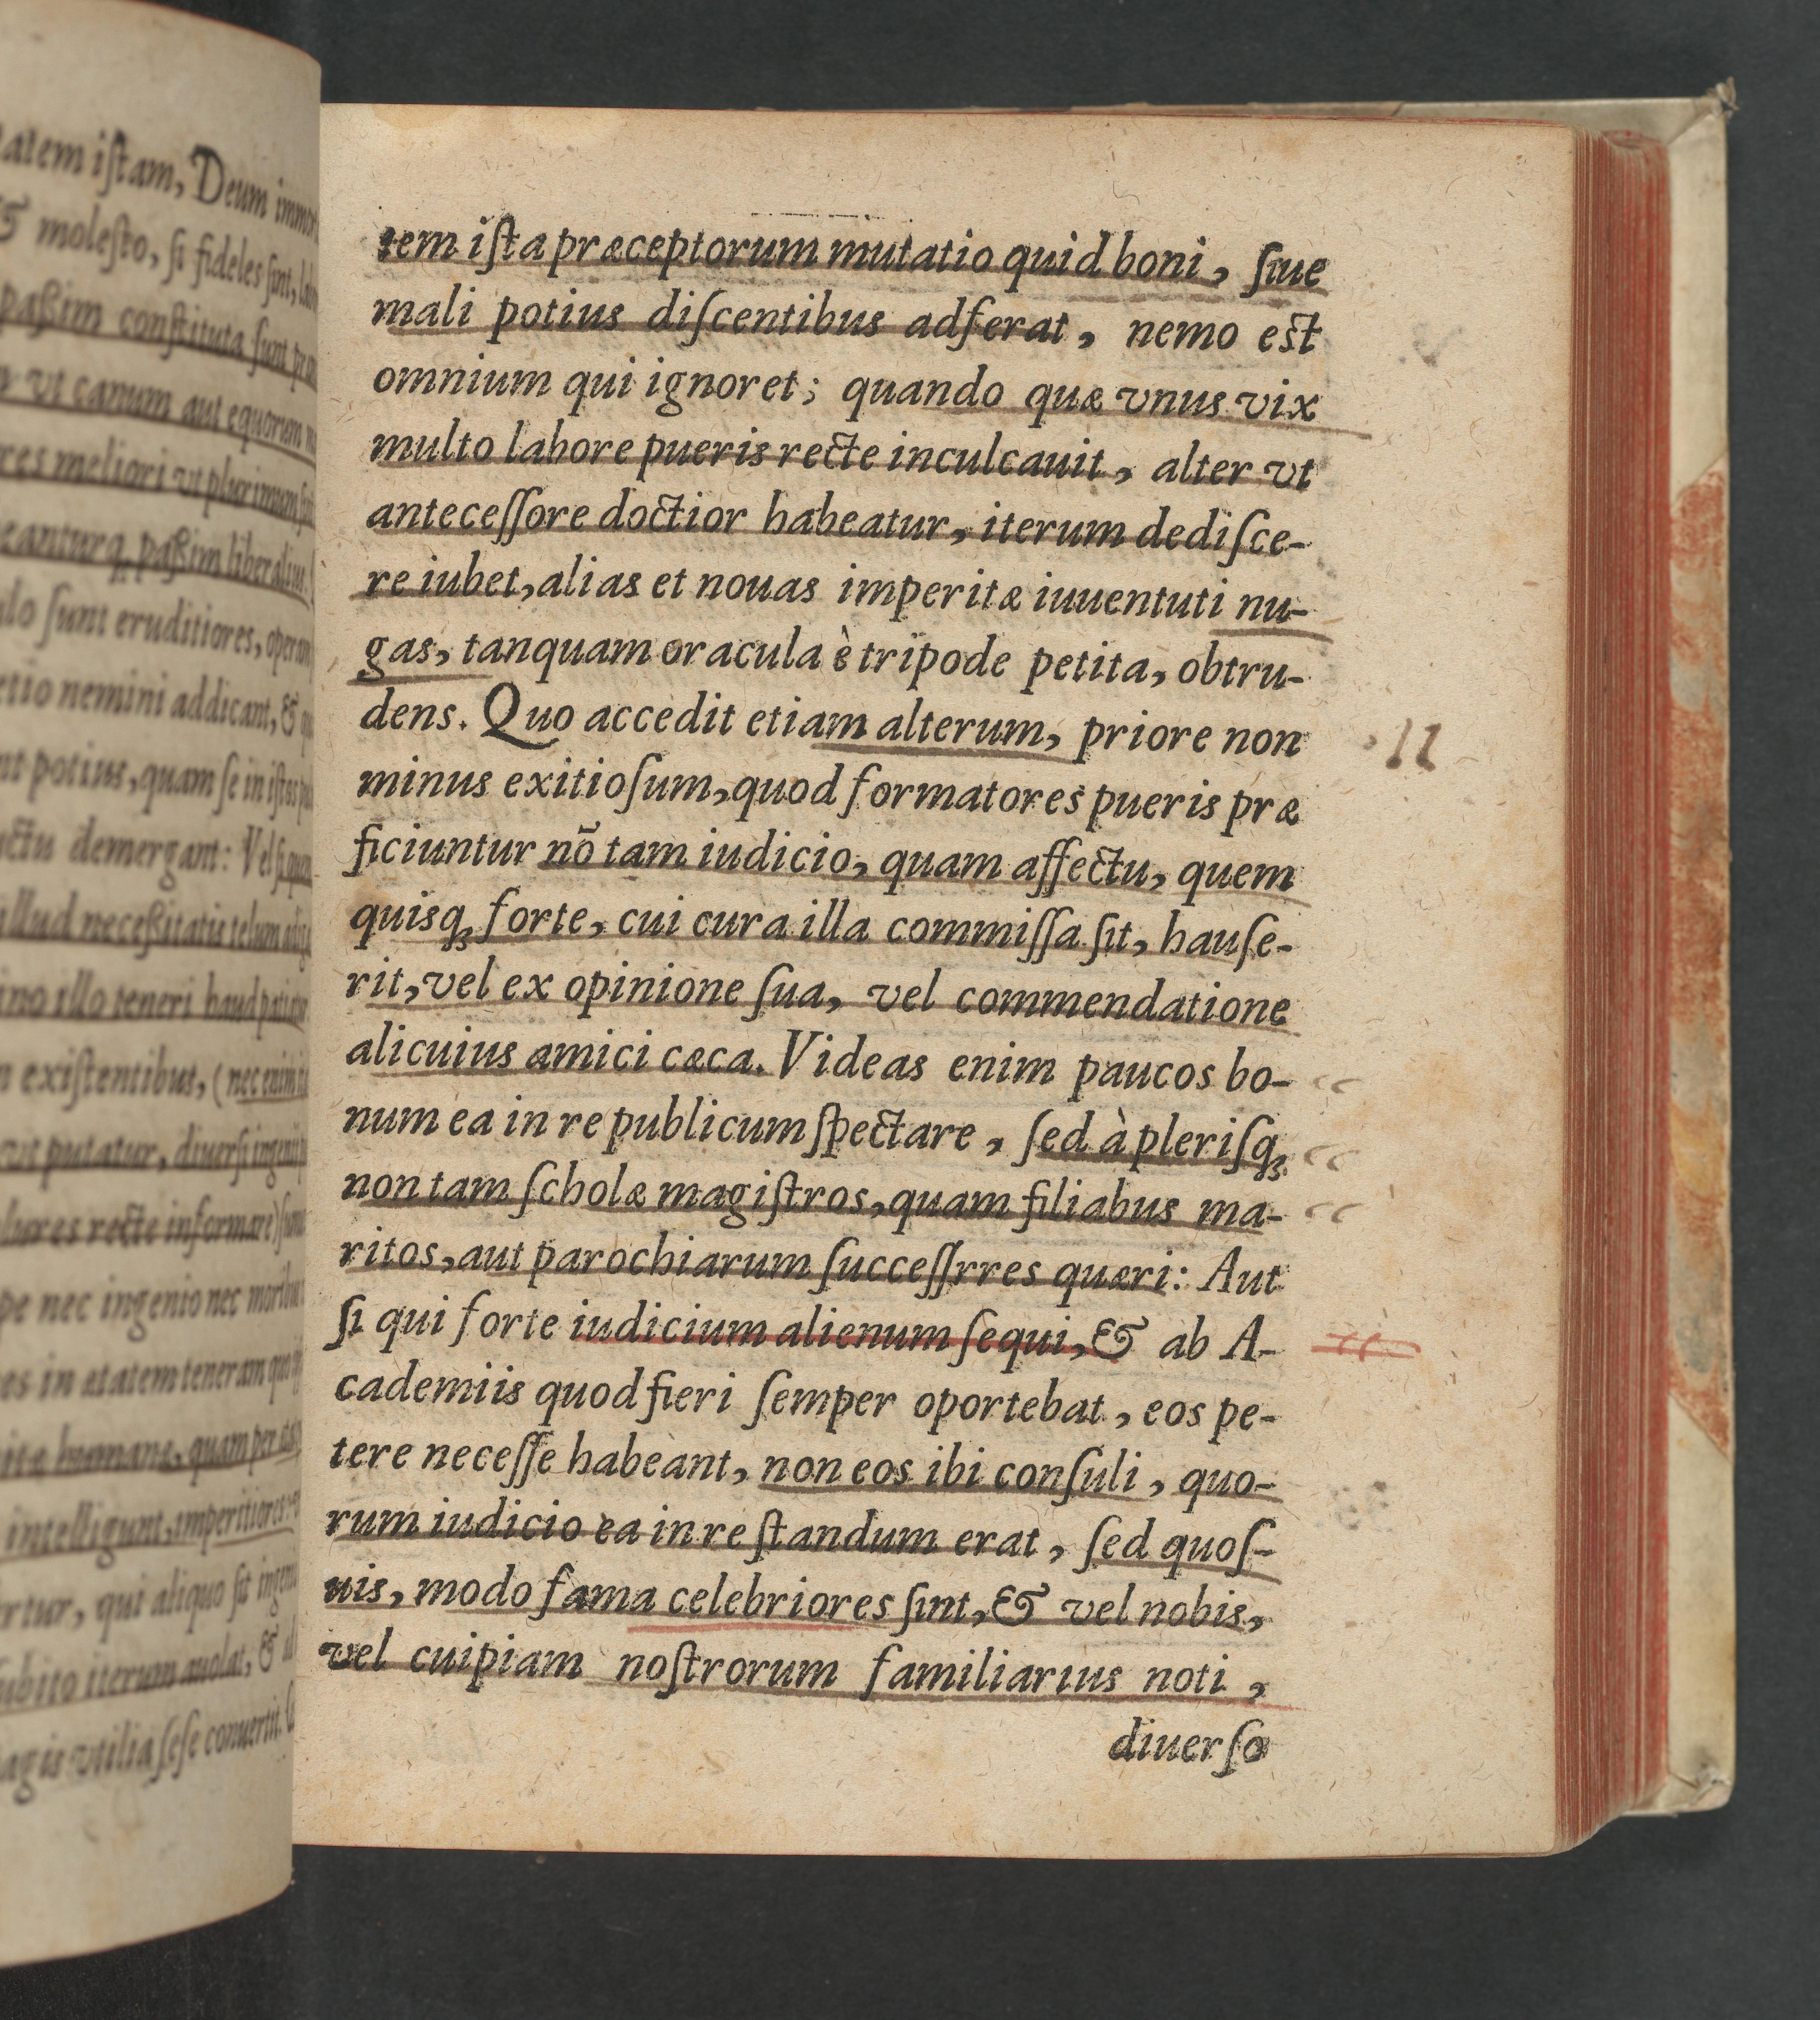 atem iſtam, Deum immor
& moleſto, ſi fideles ſint,
paßim conſtituta ſunt
vt canum aut equorum
res meliori vt plurimum
canturq́; paßim liberalius
ſunt eruditiores,
nemini addicant, &
potius, quam ſe in iſtos
demergant: Vel ſi
illud neceßitatis telum
illo teneri haud
exiſtentibus, (nec enim
vt putatur, diuerſi ingenij
recte informare)
nec ingenio nec moribus
in ætatem teneram
humanæ, quam per
intelligunt, imperitiores
qui aliquo ſit
iterum auolat, &
vtilia ſeſe conuertit.
tem iſta præceptorum mutatio quid boni, ſiue
mali potius diſcentibus adferat, nemo eſt
omnium qui ignoret; quando quæ vnus vix
multo labore pueris recte inculcauit, alter vt
anteceſſore doctior habeatur, iterum dediſce-
re iubet, alias et nouas imperitæ iuuentuti nu-
gas, tanquam oracula è tripode petita, obtru-
dens. Quo accedit etiam alterum, priore non
11
minus exitioſum, quod formatores pueris præ
ficiuntur nõ tam iudicio, quam affectu, quem
quisq́; forte, cui cura illa commiſſa ſit, hauſe-
rit, vel ex opinione ſua, vel commendatione
alicuius amici cæca. Videas enim paucos bo-
num ea in re publicum ſpectare, ſed à pleriſq́;
non tam ſcholæ magiſtros, quam filiabus ma-
ritos, aut parochiarum ſucceſſrres quæri: Aut
ſi qui forte iudicium alienum ſequi, & ab A-
cademiis quod fieri ſemper oportebat, eos pe-
tere neceſſe habeant, non eos ibi conſuli, quo-
rum iudicio ea in re ſtandum erat, ſed quoſ-
uis, modo fama celebriores ſint, & vel nobis,
vel cuipiam noſtrorum familiarius noti,
diuerſo